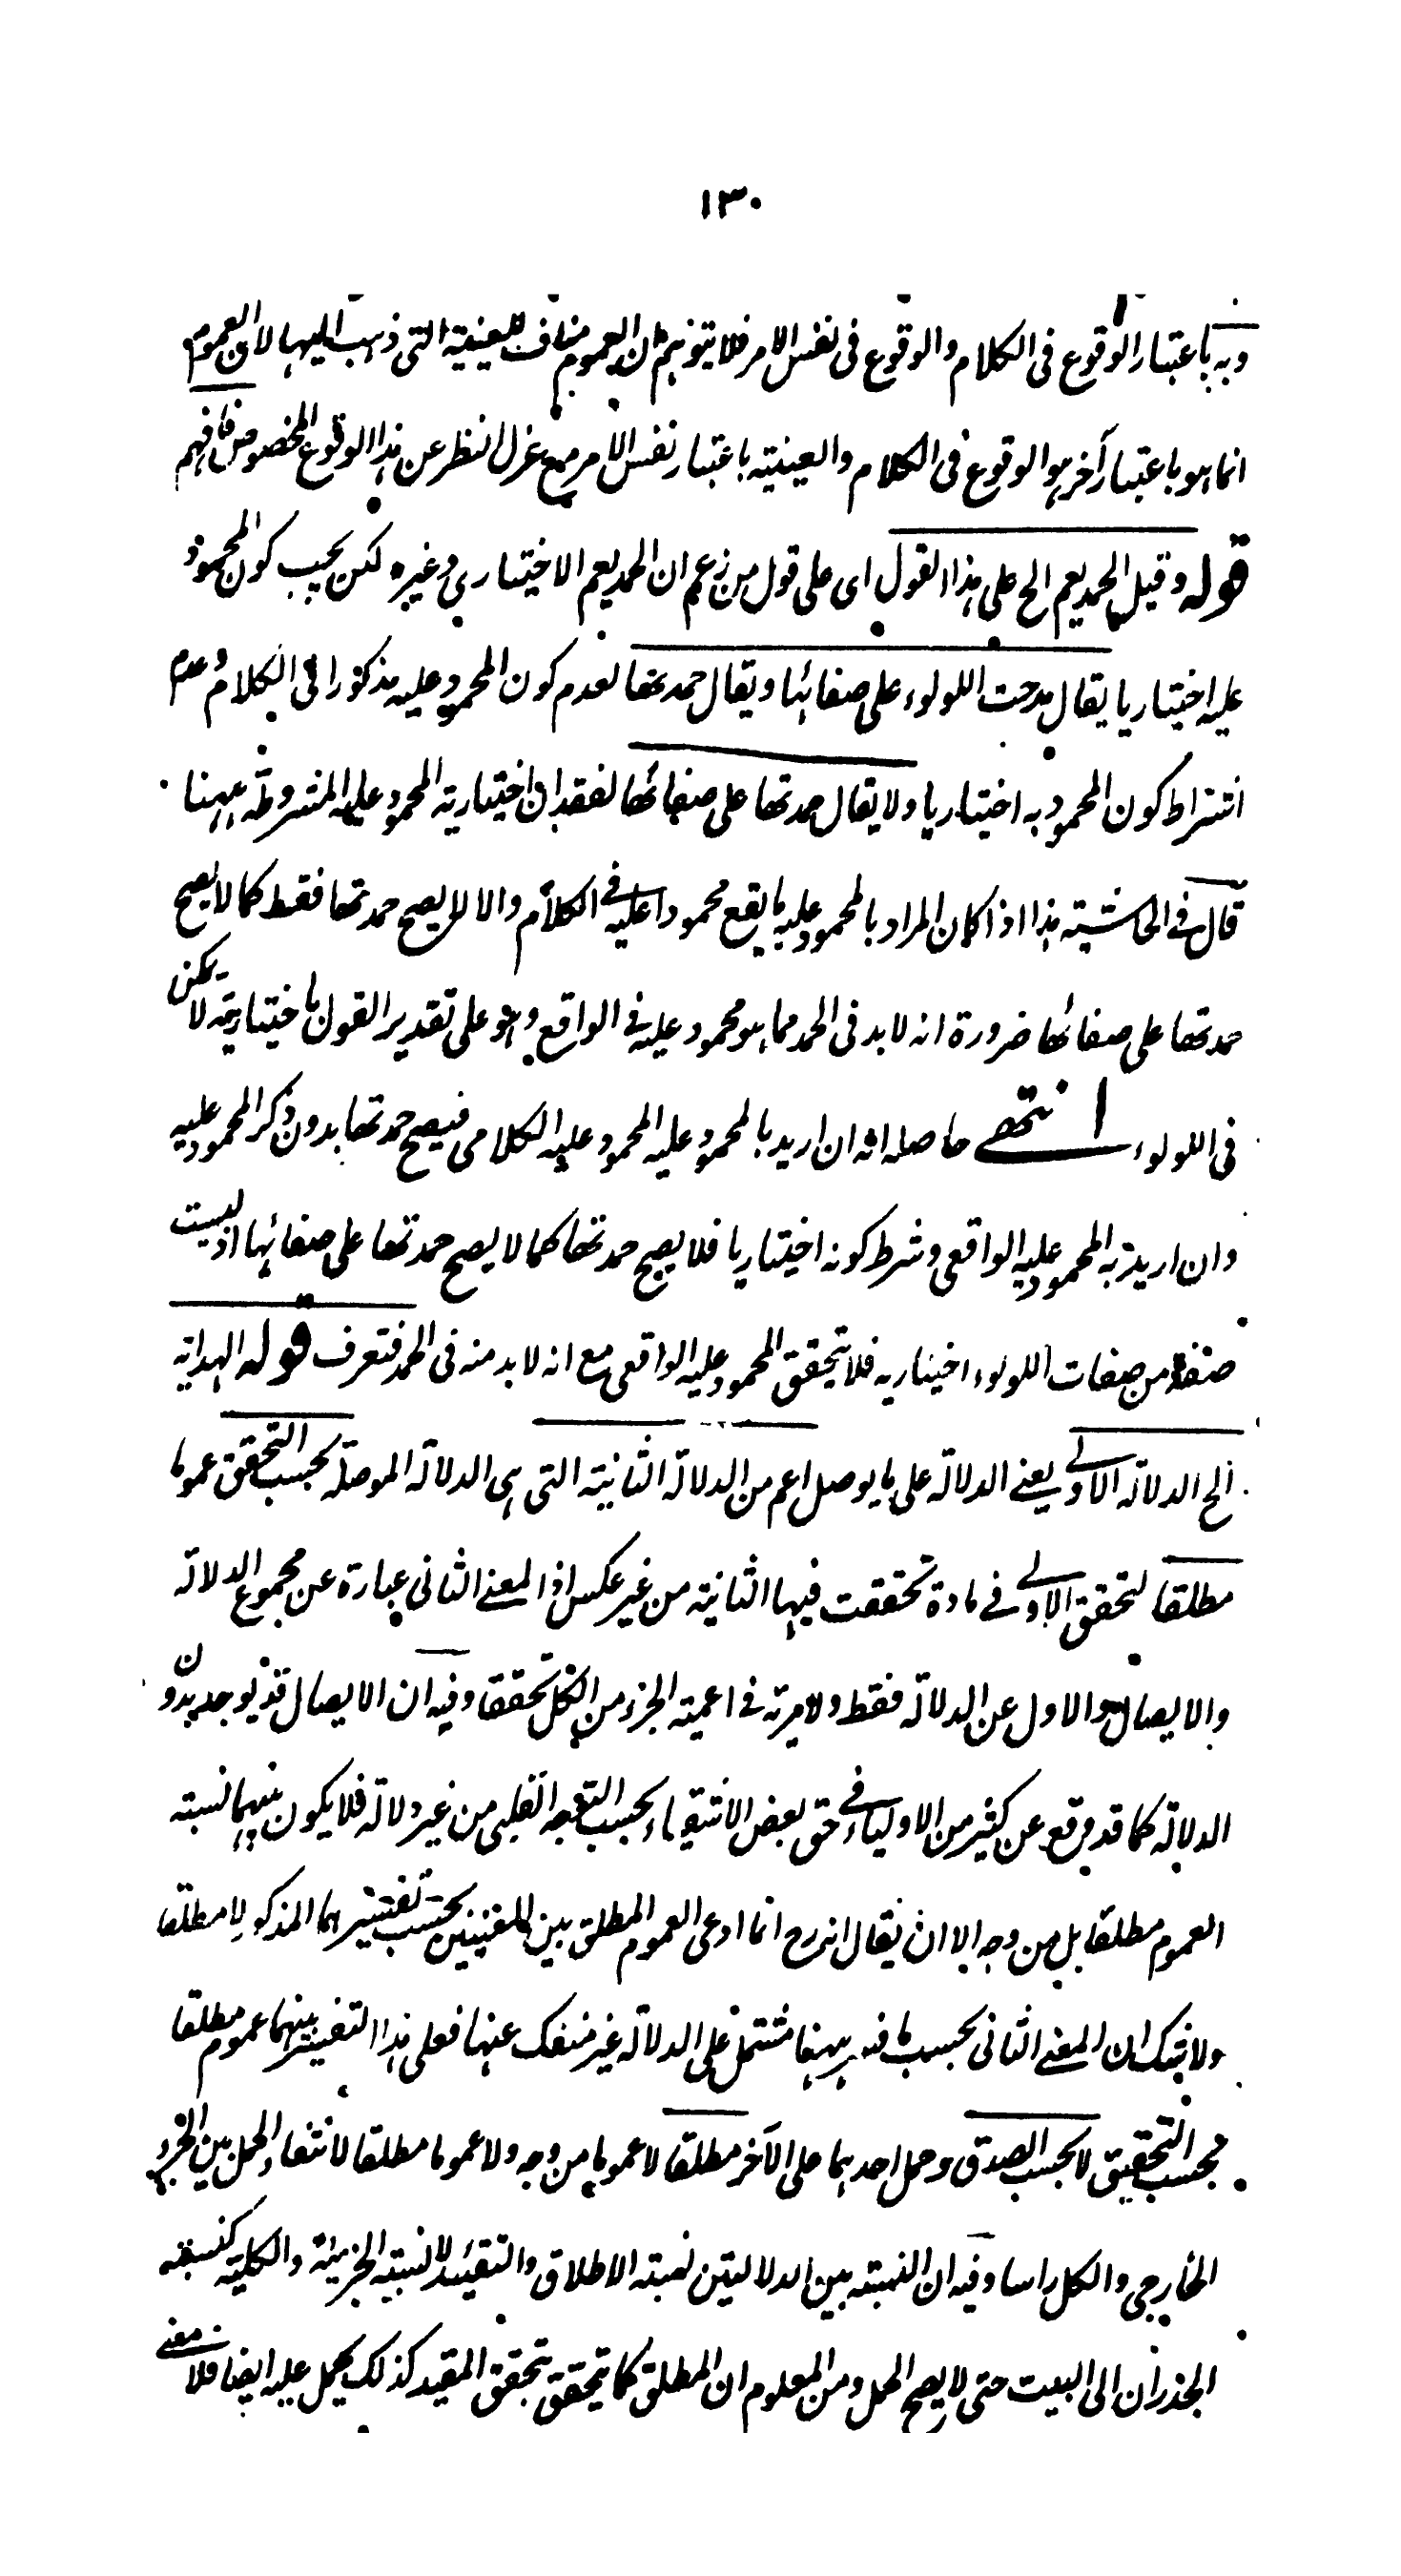 ١٣٠
وبه باعتبار الوقوع فى الكلام والوقوع فى نفس الامر فلا يتوهم ان العموم مناف للعينية التى ذهب اليها لان العموم
انما هو باعتبار آخر هو الوقوع فى الكلام والعينية باعتبار نفس الامر مع عزل النظر عن هذا الوقوع المخصوص فافهم
قوله وقيل الحمد يعم الخ على هذا القول اى على قول من زعم ان الحمد يعم الاختيارى وغيره لكن يجب كون المحمود
عليه اختياريا يقال مدحت اللولوء على صفائها ويقال حمدتها لعدم كون المحمود عليه مذكورا فى الكلام وعدم
اشتراط كون المحمود به اختياريا ولا يقال حمدتها على صفائها لفقدان اختيارية المحمود عليه المشروطة ههنا
قال فى الحاشية هذا اذا كان المراد بالمحمود عليه ما يقع محمودا عليه فى الكلام والا لا يصح حمدتها فقط كما لا يصح
حمدتها على صفائها ضرورة انه لا بد فى الحمد مما هو محمود عليه فى الواقع وهو على تقدير القول باختياريته لا يمكن
فى اللولوء انتهى حاصله انه ان اريد بالمحمود عليه المحمود عليه الكلامى فيصح حمدتها بدون ذكر المحمود عليه
وان اريد به المحمود عليه الواقعى وشرط كونه اختياريا فلا يصح حمدتها كما لا يصح حمدتها على صفائها اذ ليست
صفة من صفات اللولوء اختيارية فلا يتحقق المحمود عليه الواقعى مع انه لا بد منه فى الحمد فتعرف قوله الهداية
الخ الدلالة الاولى يعنى الدلالة على ما يوصل اعم من الدلالة الثانية التى هى الدلالة الموصلة بحسب التحقق عموما
مطلقا لتحقق الاولى فى مادة تحققت فيها الثانية من غير عكس اذ المعنى الثانى عبارة عن مجموع الدلالة
والايصال والاول عن الدلالة فقط ولا مرية فى اعمية الجزء من الكل تحققا وفيه ان الايصال قد يوجد بدون
الدلالة كما قد وقع عن كثير من الاولياء فى حق بعض الاتقياء بحسب التوجه القلبى من غير دلالة فلا يكون بينهما نسبة
العموم مطلقا بل من وجه الا ان يقال انه رح انما ادعى العموم المطلق بين المعنيين بحسب تفسيرهما المذكور لا مطلقا
ولا شك ان المعنى الثانى بحسب ما فسر ههنا مشتمل على الدلالة غير منفك عنها فعلى هذا التفسير بينهما عموم مطلقا
بحسب التحقيق لا بحسب الصدق وحمل احدهما على الآخر مطلقا لا عموما من وجه ولا عموما مطلقا لانتفاء الحمل بين الجزء
الخارجى والكل راسا وفيه ان النسبة بين الدلالتين نسبة الاطلاق والتقييد لا نسبة الجزئية والكلية كنسبة
الجذران الى البيت حتى لا يصح الحمل ومن المعلوم ان المطلق كما يتحقق بتحقق المقيد كذلك يحمل عليه ايضا فلا معنى